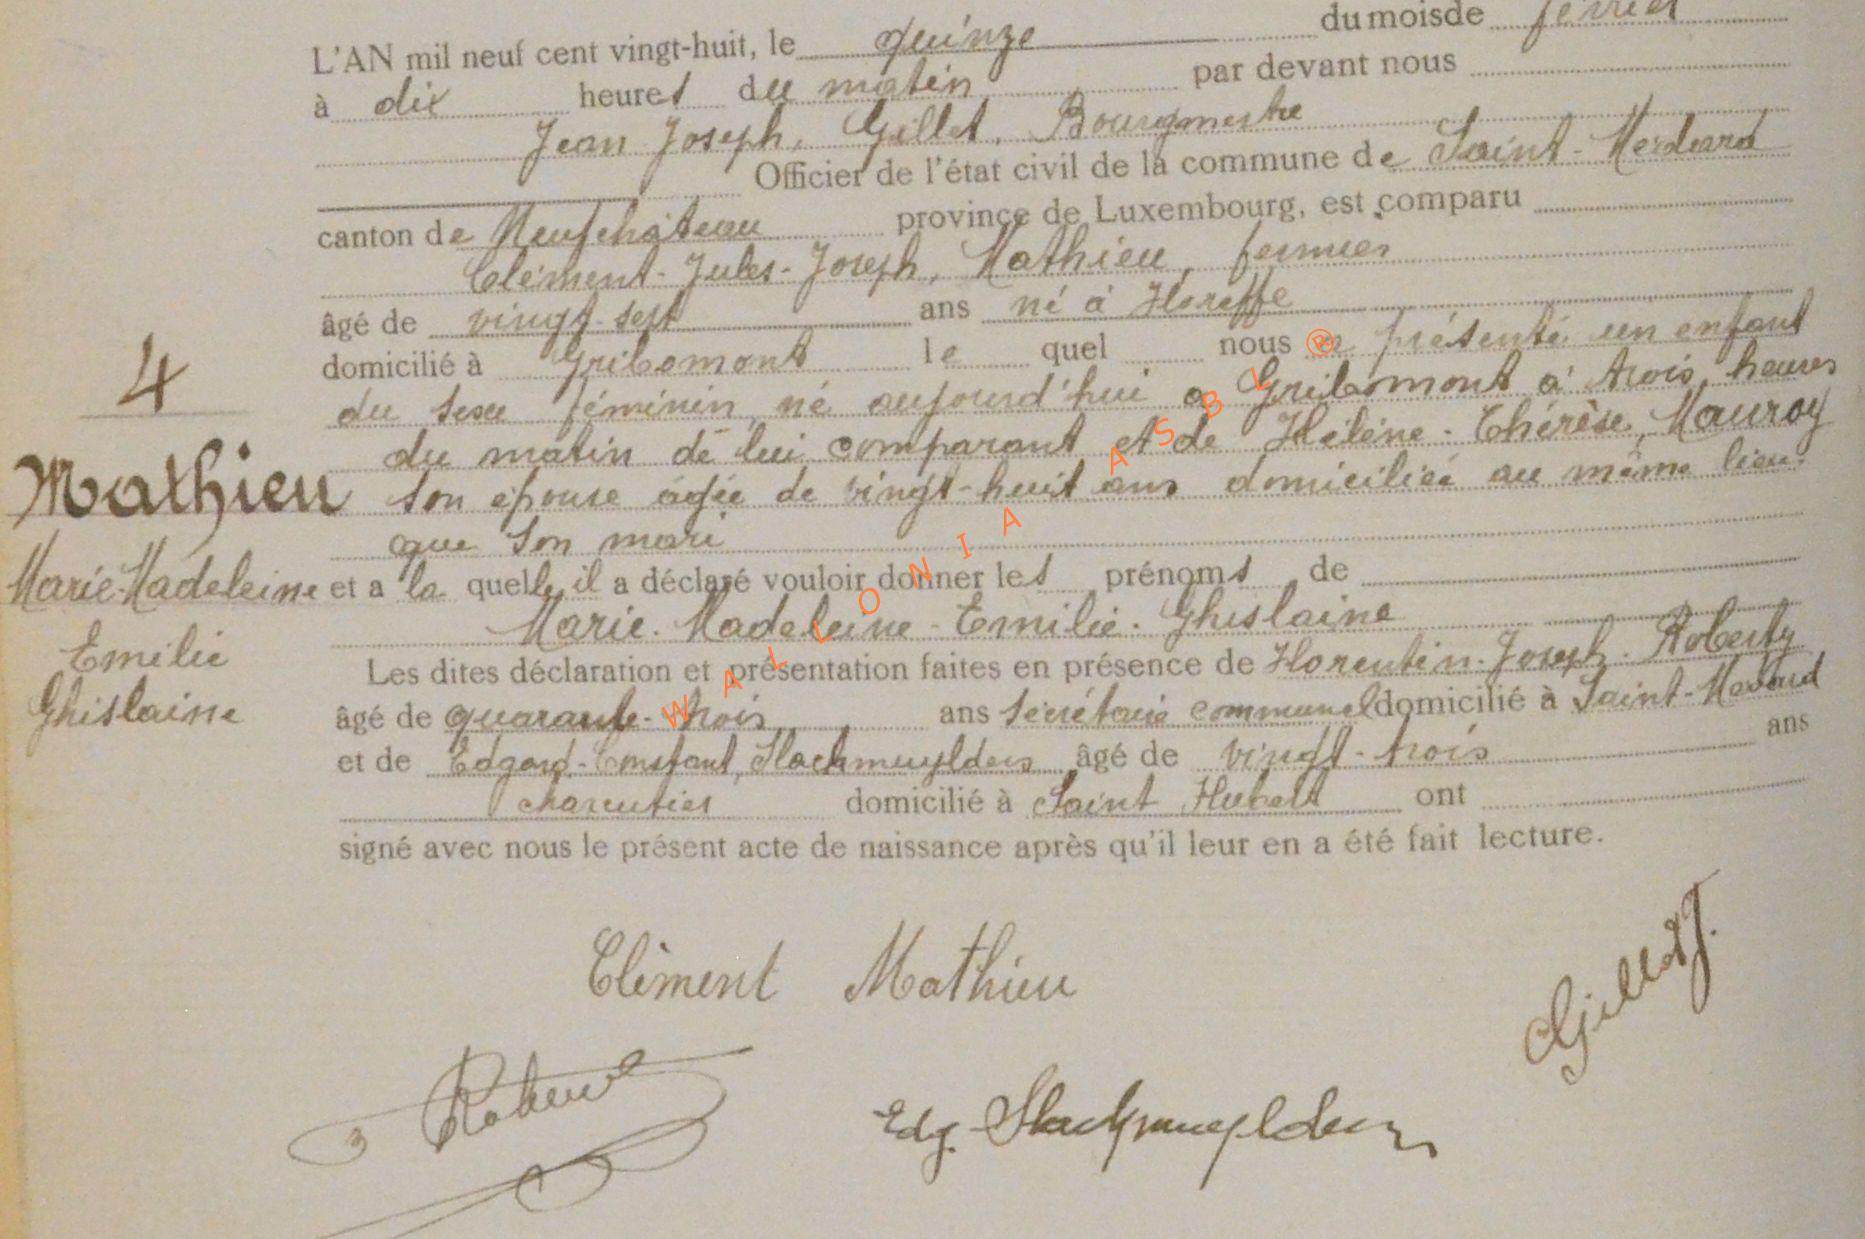 L'AN mil neuf cent vingt-huit, le quinze du mois de février
à dix heures du matin par devant nous
Jean Joseph, Gillet, Bourgmestre
Officier de l'état civil de la commune de Saint-Médard
canton de Neufchâteau province de Luxembourg, est comparu
Clément-Jules-Joseph, Mathieu, fermier
âgé de vingt-sept ans né à
domicilié à Gribomont le quel nous a présenté un enfant
du sexe féminin, né aujourd'hui a Gribomont à trois heures
du matin de lui comparant et de Hélène-Thérèse, Mauroy
son épouse agée de vingt-huit ans domiciliée au même lieu
que son mari
et a la quelle il a déclaré vouloir donner les prénoms de
Marie-Madeleine-Emilie-Ghislaine
Les dites déclaration et présentation faites en présence de Florentin-Joseph-
âgé de quarante-trois ans secrétaire communal domicilié à Saint-Médard
et de Edgard-Constant, Slachmuylders âgé de vingt-trois ans
charcutier domicilié à Saint Hubert ont
signé avec nous le présent acte de naissance après qu'il leur en a été fait lecture.
4
Mathieu
Marie-Madeleine
Emilie
Ghislaine
Clément Mathieu
Gillet J.
Edg. Slachmuylders
WALLONIA ASBL ®